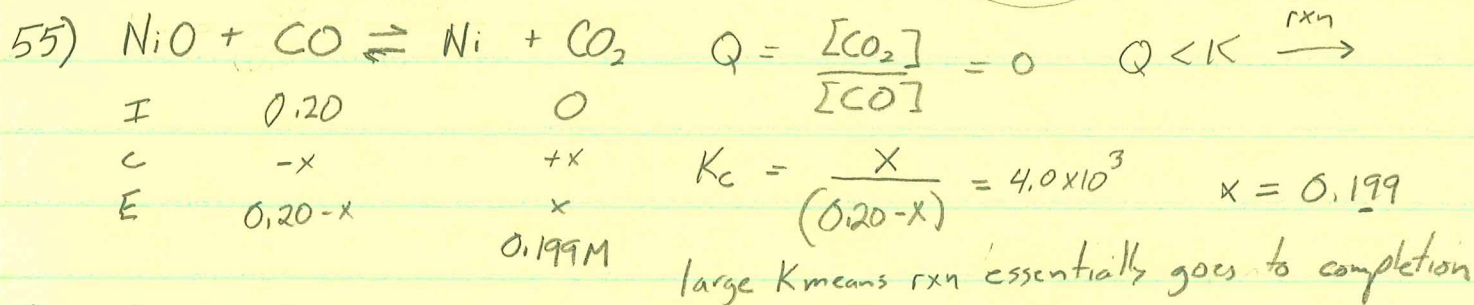 55) NiO + CO ⇌ Ni + CO₂ Q = [CO₂] / [CO] = 0 Q < K rxn →
I 0.20 0
C -x +x Kc = x / (0.20-x) = 4.0 x 10³ x = 0.199
E 0.20-x x
0.199M
large K means rxn essentially goes to completion